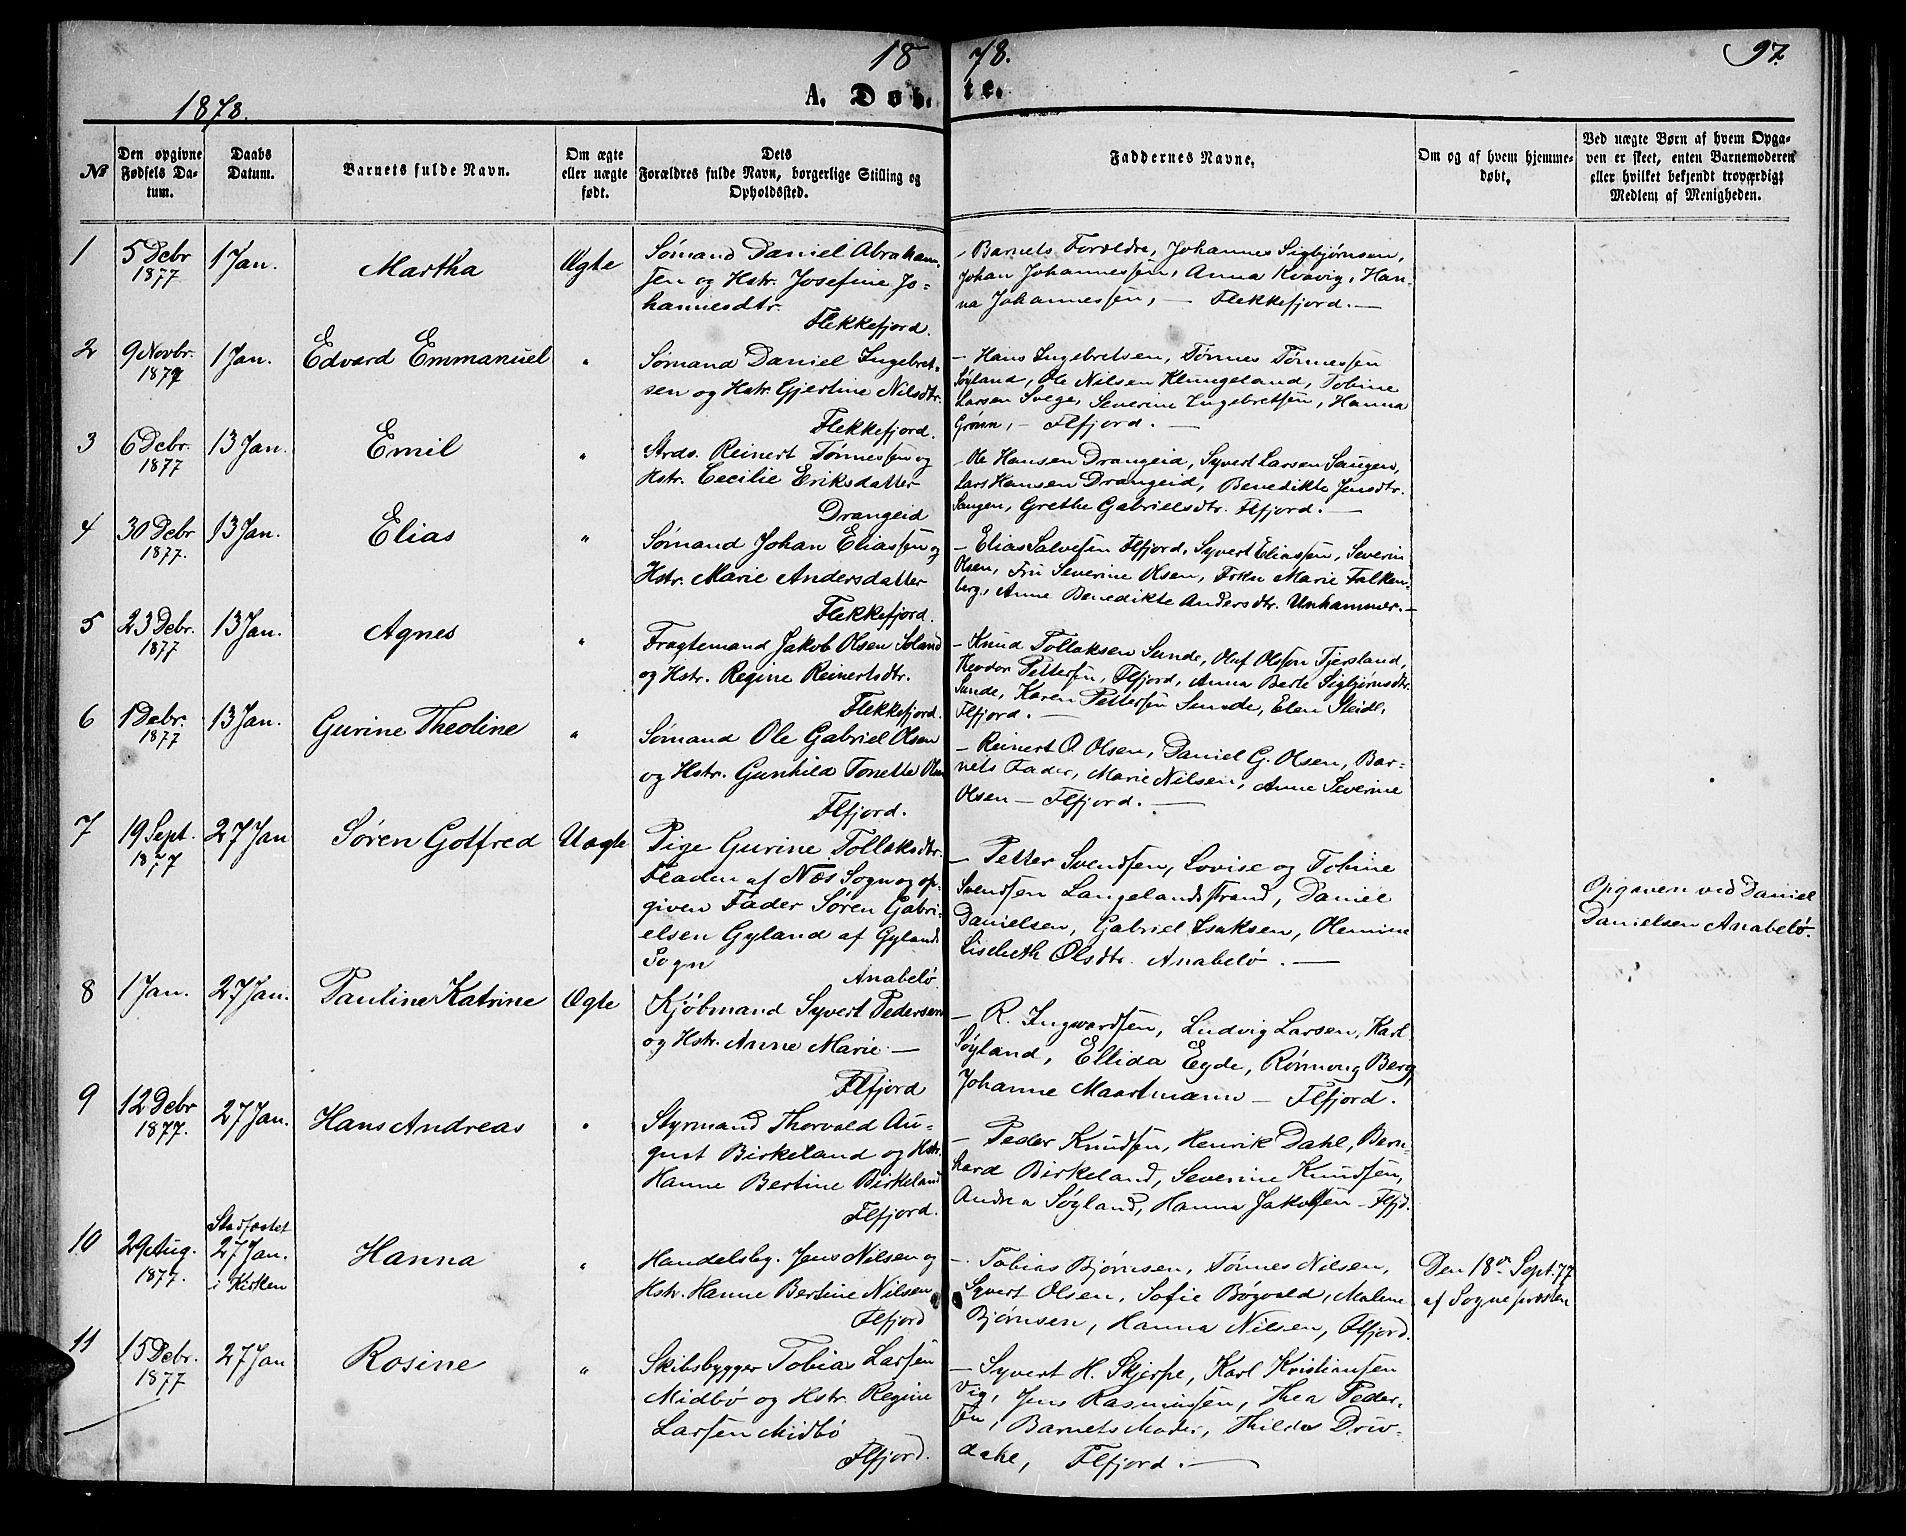 18 78. 97.
1878.
A. Døb- te.
№
Den opgivne Fødsels Datum.
Daabs Datum.
Barnets fulde Navn.
Om ægte eller uægte født.
Dets Forældres fulde Navn, borgerlige Stilling og Opholdssted.
Faddernes Navne.
Om og af hvem hjemmedøbt.
Ved uægte Børn af hvem Opgaven er skeet, enten Barnemoderen eller hvilket bekjendt troværdigt Medlem af Menigheden.
1
5 Debr 1877
1 Jan.
Martha
Ægte
Sømand Daniel Abraham-
sen og Hstr. Josefine Jo-
hannesdtr.
Flekkefjord.
- Barnets Forældre, Johannes Sigbjørnsen,
Johan Johannessen, Anna Kvavig, Han-
na Johannessen, - Flekkefjord. -
2
9 Novbr. 1877
1 Jan.
Edvard Emmanuel
"
Sømand Daniel Ingebret-
sen og Hstr. Gjertine Nilsdtr.
Flekkefjord.
- Hans Ingebretsen, Tønnes Tønnessen
Søyland, Ole Nilsen Klungeland, Tobine
Larsen Svege, Severine Ingebretsen, Hanna
Grønn, - Flfjord. -
3
6 Debr. 1877
13 Jan.
Emil
"
Strds. Reinert Tønnessen og
Hstr. Cecilie Eriksdatter
Drangeid
- Ole Hansen Drangeid, Syvert Larsen Saugen,
Lars Hansen Drangeid, Benedikte Jensdtr.
Saugen, Grethe Gabrielsdtr. Flfjord. -
4
30 Debr 1877.
13 Jan.
Elias
"
Sømand Johan Eliassen og
Hstr. Marie Andersdatter
Flekkefjord.
- Elias Salvesen Flfjord, Syvert Eliassen, Severin
Olsen, Fru Severine Olsen, Frkn Marie Falken-
berg, Anne Benedikte Andersdtr. Unhammer. -
5
23 Debr. 1877
13 Jan.
Agnes
"
Fragtemand Jakob Olsen Søland
og Hstr. Regine Reinertsdtr.
Flekkefjord.
- Knud Tollaksen Sunde, Oluf Olsen Fjersland,
Theodor Pettersen, Flfjord, Anna Berte Sigbjørnsdtr.
Sunde, Karen Pettersen Sunde, Elen Steidl,
Flfjord. -
6
1 Debr. 1877
13 Jan.
Gurine Theoline
"
Sømand Ole Gabriel Olsen
og Hstr. Gunhild Tonette Olsen
Flfjord.
- Reinert O. Olsen, Daniel G. Olsen, Bar-
nets Fader, Marie Nilsen, Anne Severine
Olsen - Flfjord. -
7
19 Sept. 1877
27 Jan
Søren Gotfred
Uægte
Pige Gurine Tollaksdtr.
Fladen af Næs Sogn og op-
given Fader Søren Gabri-
elsen Gyland af Gylands
Sogn
Anabelø.
- Petter Svendsen, Lovise og Tobine
Svendsen Langelandsstrand, Daniel
Danielsen, Gabriel Isaksen, Olemine
Lisebeth Olsdtr. Anabelø. -
Opgaven ved Daniel
Danielsen Anabelø.
8
1 Jan.
27 Jan.
Pauline Katrine
Ægte
Kjøbmand Syvert Pedersen
og Hstr. Anne Marie -
Flfjord
- R. Ingwardsen, Ludvig Larsen, Karl
Søyland, Ellida Egde, Rønnoug Berg,
Johanne Maartmann - Flfjord.
9
12 Debr 1877.
27 Jan.
Hans Andreas
"
Styrmand Thorvald Au-
gust Birkeland og Hstr.
Hanne Bertine Birkeland
Flfjord.
- Peder Knudsen, Henrik Dahl, Bern-
hard Birkeland, Severine Knudsen,
Andrea Søyland, Hanna Jakobsen - Flfjd.
10
29 Aug. 1877.
Stadfæstet 27 Jan. i Kirken
Hanna
"
Handelsbg. Jens Nilsen og
Hstr. Hanne Bertine Nilsen
Flfjord
- Tobias Bjørnsen, Tønnes Nilsen,
Syvert Olsen, Sofie Bøgvald, Malene
Bjørnsen, Hanna Nilsen, Flfjord.
Den 18de Sept. 77
af Sognepræsten
11
15 Debr. 1877
27 Jan
Rosine
"
Skibsbygger Tobias Larsen
Midbø og Hstr. Regine
Larsen Midbø
Flfjord.
- Syvert H. Skjerpe, Karl Kristiansen
Vig, Jens Rasmussen, Thea Peder-
sen, Barnets Moder, Thilda Driv-
dahl, Flfjord. -